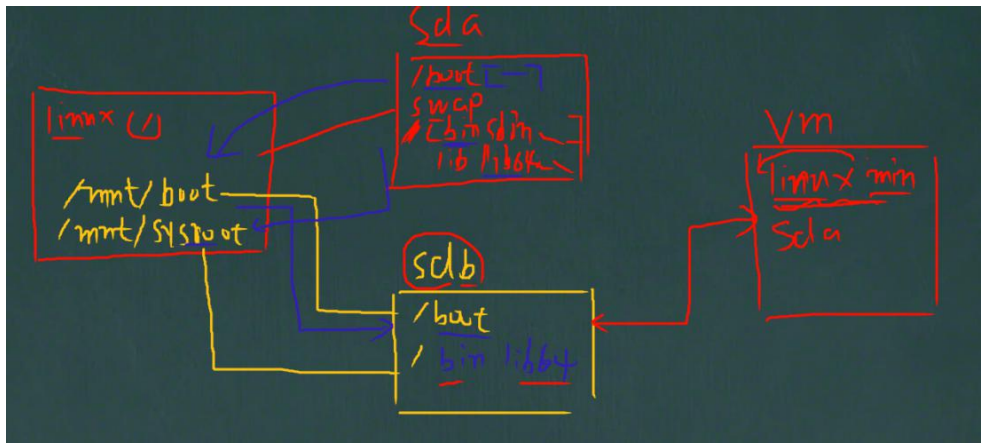 sda
/boot [---]
swap
/ [bin sdin
lib lib64
linux (/)
/mnt/boot
/mnt/sysroot
sdb
/boot
/ bin lib64
vm
linux min
sda